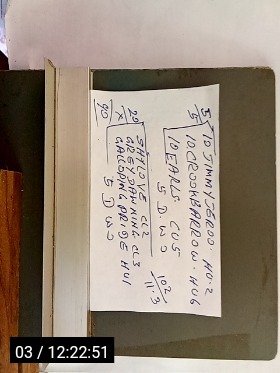 10 JIMMY JEROO. HO.2
10 CROOKBARROW. HU6
10 EARLS CUS
5 D. W
102
11.3
SHILOVE CL2
GREY DAWNING CL3
GALLOPING BRIDE HUI
5 D W
20
X
90
03 / 12:22:51